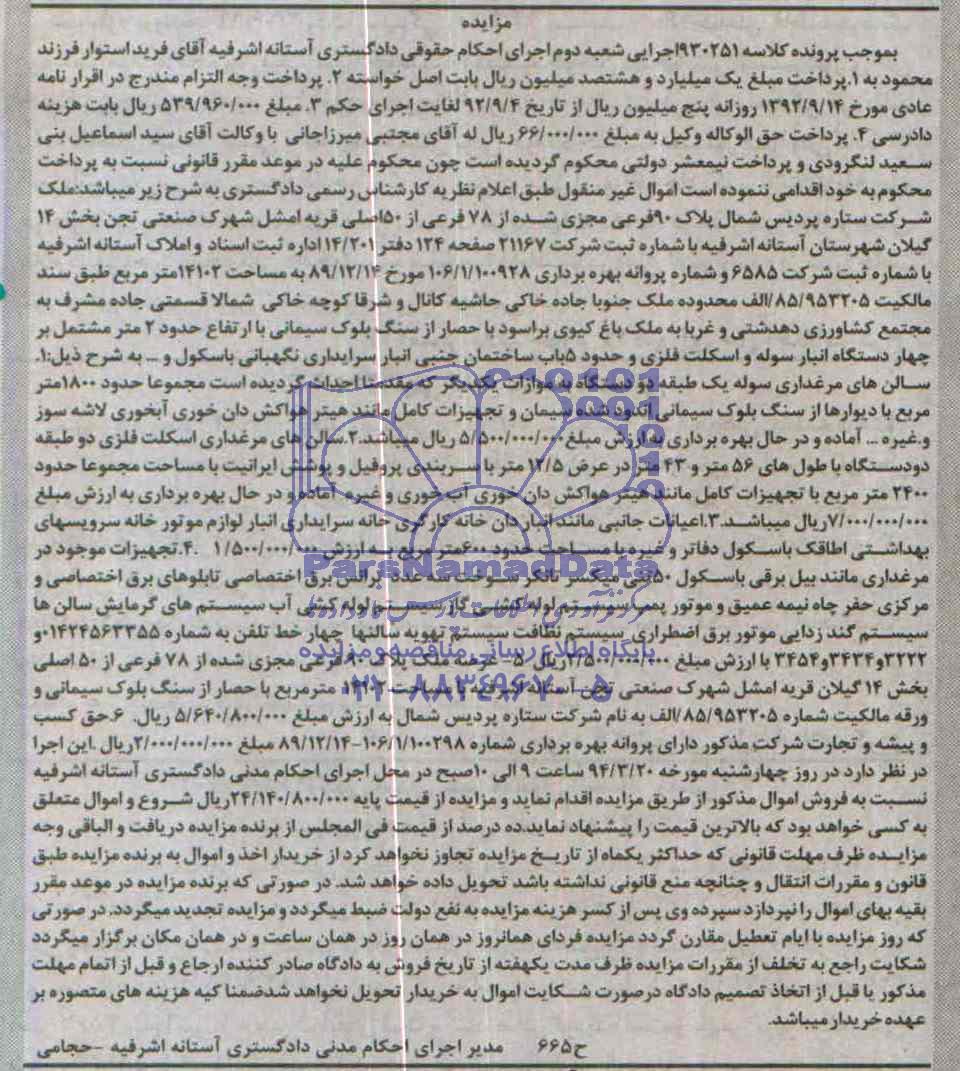 مزایده
بموجب پرونده کلاسه ۹۳۰۲۵۱اجرایی شعبه دوم اجرای احکام حقوقی دادگستری آستانه اشرفیه آقای فرید استوار فرزند
محمود به ۱.پرداخت مبلغ یک میلیارد و هشتصد میلیون ریال بابت اصل خواسته ۲. پرداخت وجه التزام مندرج در اقرار نامه
عادی مورخ ۱۳۹۲/۹/۱۴ روزانه پنج میلیون ریال از تاریخ ۹۲/۹/۴ لغایت اجرای حکم ۳. مبلغ ۵۳۹/۹۶۰/۰۰۰ ریال بابت هزینه
دادرسی ۴. پرداخت حق الوکاله وکیل به مبلغ ۶۶/۰۰۰/۰۰۰ ریال له آقای مجتبی میرزاجانی با وکالت آقای سید اسماعیل بنی
سعید لنگرودی و پرداخت نیمعشر دولتی محکوم گردیده است چون محکوم علیه در موعد مقرر قانونی نسبت به پرداخت
محکوم به خود اقدامی ننموده است اموال غیر منقول طبق اعلام نظریه کارشناس رسمی دادگستری به شرح زیر میباشد:ملک
شرکت ستاره پردیس شمال پلاک ۹۰فرعی مجزی شده از ۷۸ فرعی از ۵۰اصلی قریه امشل شهرک صنعتی تجن بخش ۱۴
گیلان شهرستان آستانه اشرفیه با شماره ثبت شرکت ۲۱۱۶۷ صفحه ۱۲۴ دفتر ۱۴/۲۰۱ اداره ثبت اسناد و املاک آستانه اشرفیه
با شماره ثبت شرکت ۶۵۸۵ و شماره پروانه بهره برداری ۱۰۶/۱/۱۰۰۹۲۸ مورخ ۸۹/۱۲/۱۴ به مساحت ۱۴۱۰۲متر مربع طبق سند
مالکیت ۸۵/۹۵۳۲۰۵/الف محدوده ملک جنوبا جاده خاکی حاشیه کانال و شرقا کوچه خاکی شمالا قسمتی جاده مشرف به
مجتمع کشاورزی دهدشتی و غربا به ملک باغ کیوی براسود با حصار از سنگ بلوک سیمانی با ارتفاع حدود ۲ متر مشتمل بر
چهار دستگاه انبار سوله و اسکلت فلزی و حدود ۵باب ساختمان جنبی انبار سرایداری نگهبانی باسکول و ... به شرح ذیل:۱.
سالن های مرغداری سوله یک طبقه دو دستگاه به موازات یکدیگر که مقدمتا احداث گردیده است مجموعا حدود ۱۸۰۰متر
مربع با دیوارها از سنگ بلوک سیمانی اندود شده سیمان و تجهیزات کامل مانند هیتر هواکش دان خوری آبخوری لاشه سوز
و.غیره ... آماده و در حال بهره برداری به ارزش مبلغ ۵/۵۰۰/۰۰۰/۰۰۰ ریال میباشد.۲.سالن های مرغداری اسکلت فلزی دو طبقه
دودستگاه با طول های ۵۶ متر و ۴۳ متر در عرض ۱۲/۵ متر با سربندی پروفیل و پوشش ایرانیت با مساحت مجموعا حدود
۲۴۰۰ متر مربع با تجهیزات کامل مانند هیتر هواکش دان خوری آب خوری و غیره آماده و در حال بهره برداری به ارزش مبلغ
۷/۰۰۰/۰۰۰/۰۰۰ریال میباشد.۳.اعیانات جانبی مانند انبار دان خانه کارگری خانه سرایداری انبار لوازم موتور خانه سرویسهای
بهداشتی اطاقک باسکول دفاتر و غیره با مساحت حدود ۶۰۰متر مربع به ارزش ۱/۵۰۰/۰۰۰/۰۰۰ .۴.تجهیزات موجود در
مرغداری مانند بیل برقی باسکول ۵۰تنی میکسر تانکر سوخت سه عدد ترانس برق اختصاصی تابلوهای برق اختصاصی و
مرکزی حفر چاه نیمه عمیق و موتور پمپ سیستم لوله کشی گاز سیستم لوله کشی آب سیستم های گرمایش سالن ها
سیستم گند زدایی موتور برق اضطراری سیستم نظافت سیستم تهویه سالنها چهار خط تلفن به شماره ۰۱۴۲۴۵۶۳۳۵۵و
۳۲۲۲و۳۴۳۴و۳۴۵۴ با ارزش مبلغ ۲/۵۰۰/۰۰۰/۰۰۰ریال ۵- عرصه ملک پلاک ۹۰ فرعی مجزی شده از ۷۸ فرعی از ۵۰ اصلی
بخش ۱۴ گیلان قریه امشل شهرک صنعتی تجن آستانه اشرفیه با مساحت ۱۴۱۰۲ مترمربع با حصار از سنگ بلوک سیمانی و
ورقه مالکیت شماره ۸۵/۹۵۳۲۰۵/الف به نام شرکت ستاره پردیس شمال به ارزش مبلغ ۵/۶۴۰/۸۰۰/۰۰۰ ریال. ۶.حق کسب
و پیشه و تجارت شرکت مذکور دارای پروانه بهره برداری شماره ۱۰۶/۱/۱۰۰۲۹۸-۸۹/۱۲/۱۴ مبلغ ۲/۰۰۰/۰۰۰/۰۰۰ریال .این اجرا
در نظر دارد در روز چهارشنبه مورخه ۹۴/۳/۲۰ ساعت ۹ الی ۱۰صبح در محل اجرای احکام مدنی دادگستری آستانه اشرفیه
نسبت به فروش اموال مذکور از طریق مزایده اقدام نماید و مزایده از قیمت پایه ۲۴/۱۴۰/۸۰۰/۰۰۰ریال شروع و اموال متعلق
به کسی خواهد بود که بالاترین قیمت را پیشنهاد نماید.ده درصد از قیمت فی المجلس از برنده مزایده دریافت و الباقی وجه
مزایده ظرف مهلت قانونی که حداکثر یکماه از تاریخ مزایده تجاوز نخواهد کرد از خریدار اخذ و اموال به برنده مزایده طبق
قانون و مقررات انتقال و چنانچه منع قانونی نداشته باشد تحویل داده خواهد شد. در صورتی که برنده مزایده در موعد مقرر
بقیه بهای اموال را نپردازد سپرده وی پس از کسر هزینه مزایده به نفع دولت ضبط میگردد و مزایده تجدید میگردد. در صورتی
که روز مزایده با ایام تعطیل مقارن گردد مزایده فردای همانروز در همان روز در همان ساعت و در همان مکان برگزار میگردد
شکایت راجع به تخلف از مقررات مزایده ظرف مدت یکهفته از تاریخ فروش به دادگاه صادر کننده ارجاع و قبل از اتمام مهلت
مذکور یا قبل از اتخاذ تصمیم دادگاه درصورت شکایت اموال به خریدار تحویل نخواهد شدضمنا کیه هزینه های متصوره بر
عهده خریدار میباشد.
ح۶۶۵ مدیر اجرای احکام مدنی دادگستری آستانه اشرفیه -حجامی
ParsNamadData
پایگاه اطلاع رسانی مناقصه و مزایده
۰۲۱-۸۸۳۴۹۶۷۰-۵